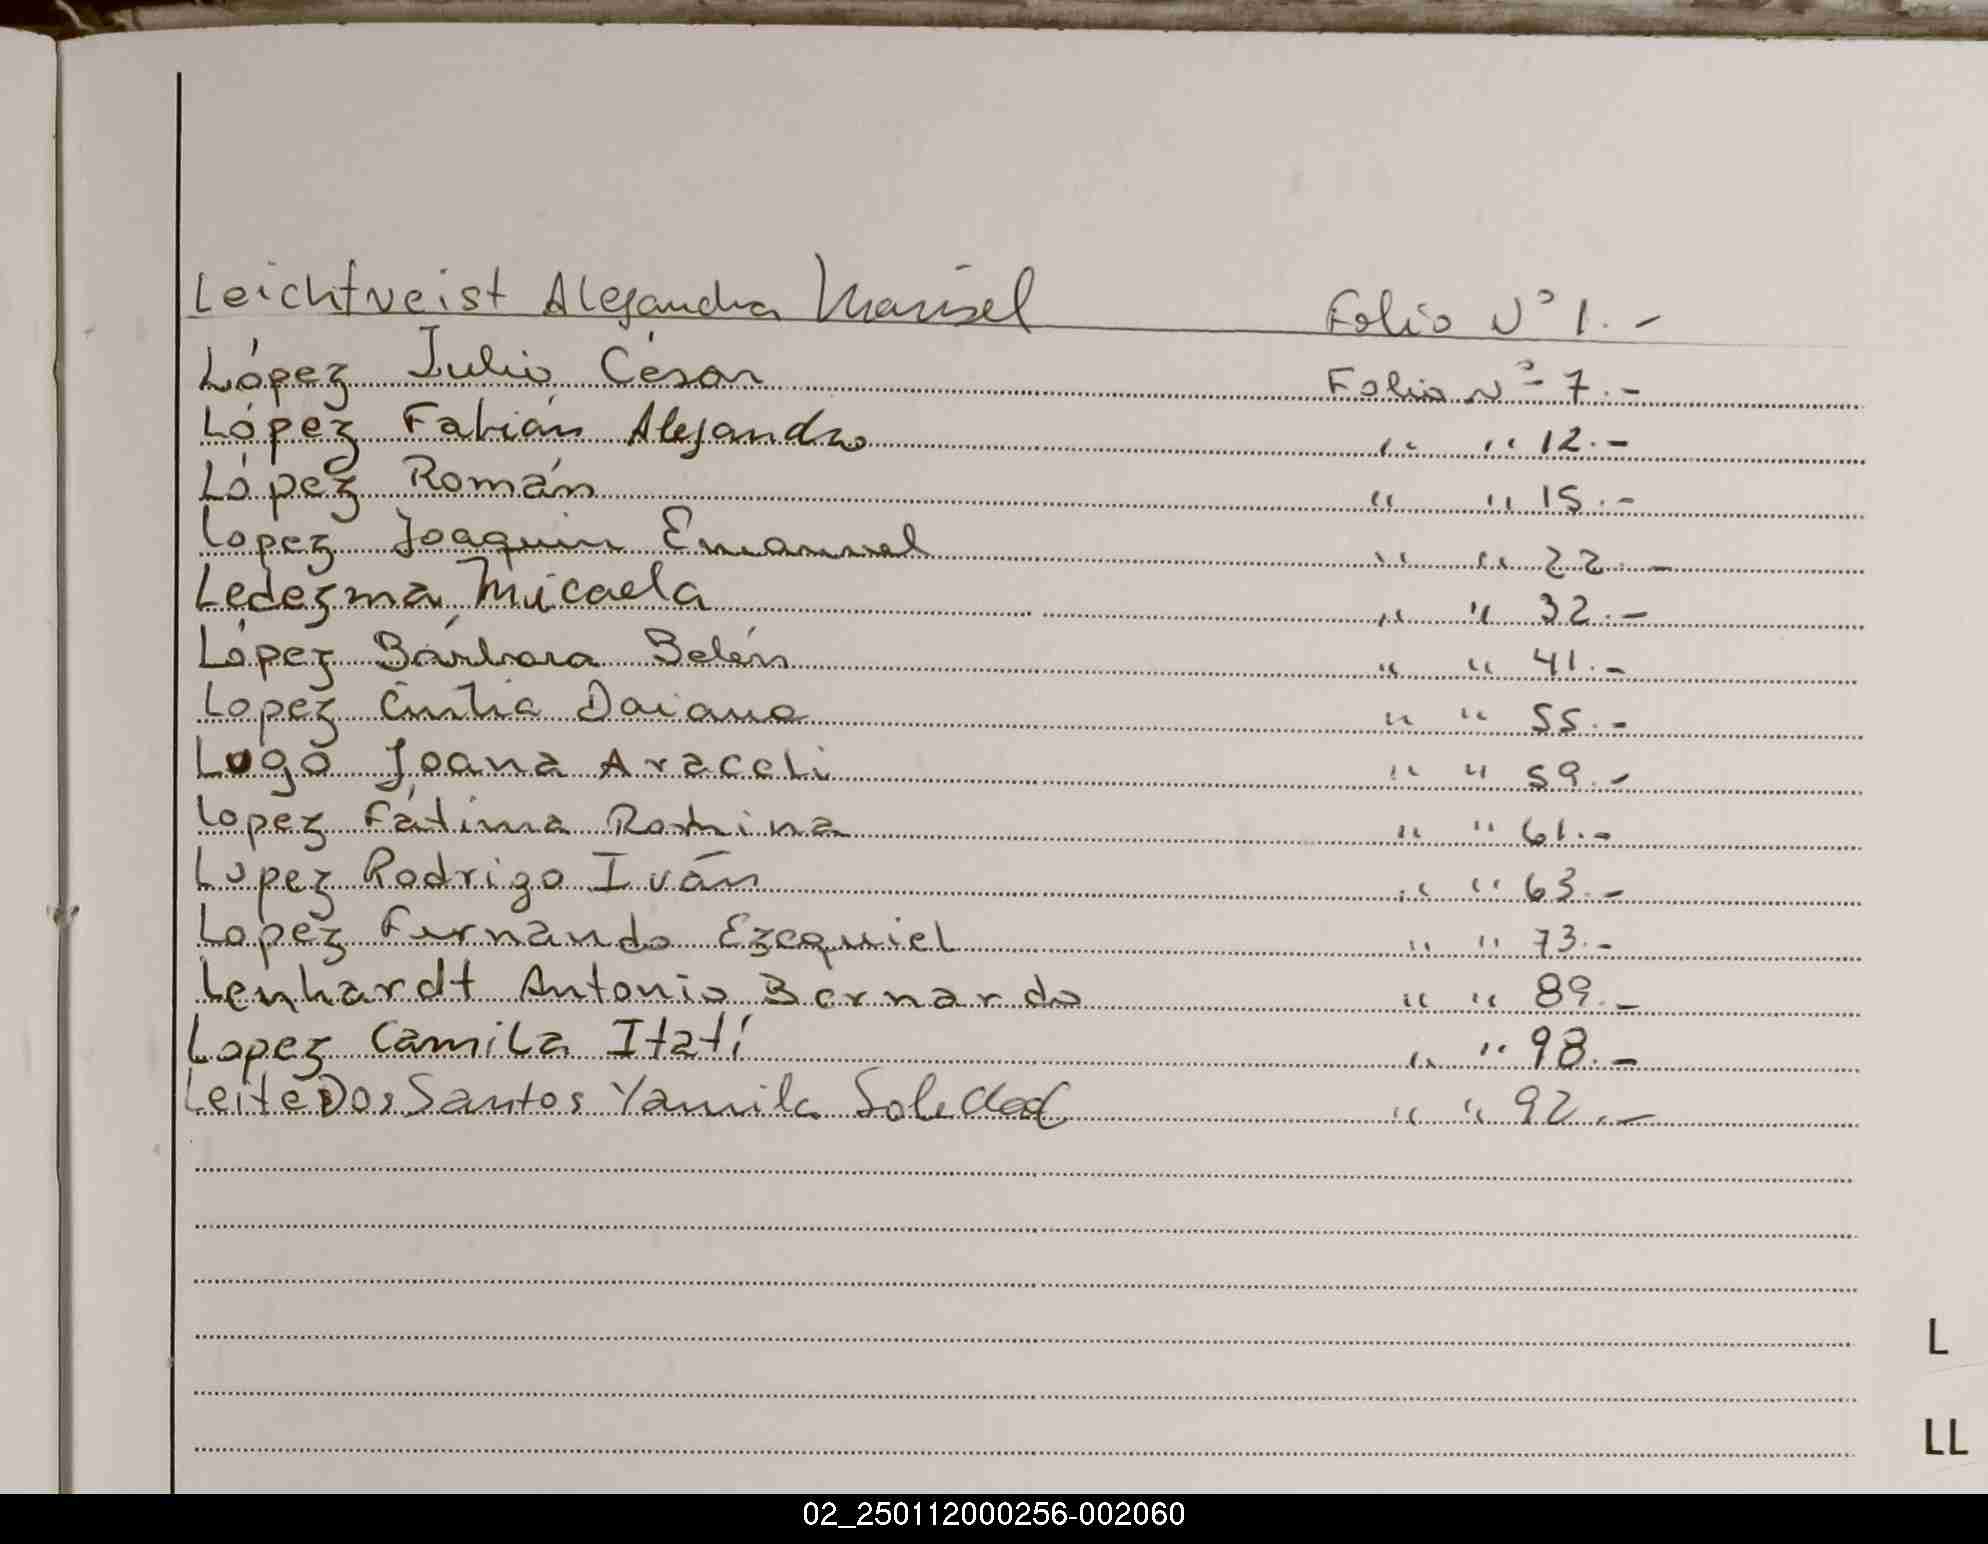 Leichtveist Alejandra Marisel Folio N° 1.-
López Julio César Folio N° 7.-
López Fabián Alejandro " " 12.-
López Román " " 15.-
Lopez Joaquin Emanuel " " 22.-
Ledezma Micaela " " 32.-
López Bárbara Belén " " 41.-
Lopez Cintia Daiana " " 55.-
Lugo Joana Araceli " " 59.-
Lopez Fátima Romina " " 61.-
Lopez Rodrigo Iván " " 63.-
Lopez Fernando Ezequiel " " 73.-
Lenhardt Antonio Bernardo " " 89.-
Lopez Camila Itatí " " 98.-
Leite Dos Santos Yamila Soledad " " 92.-
L
LL
02_250112000256-002060